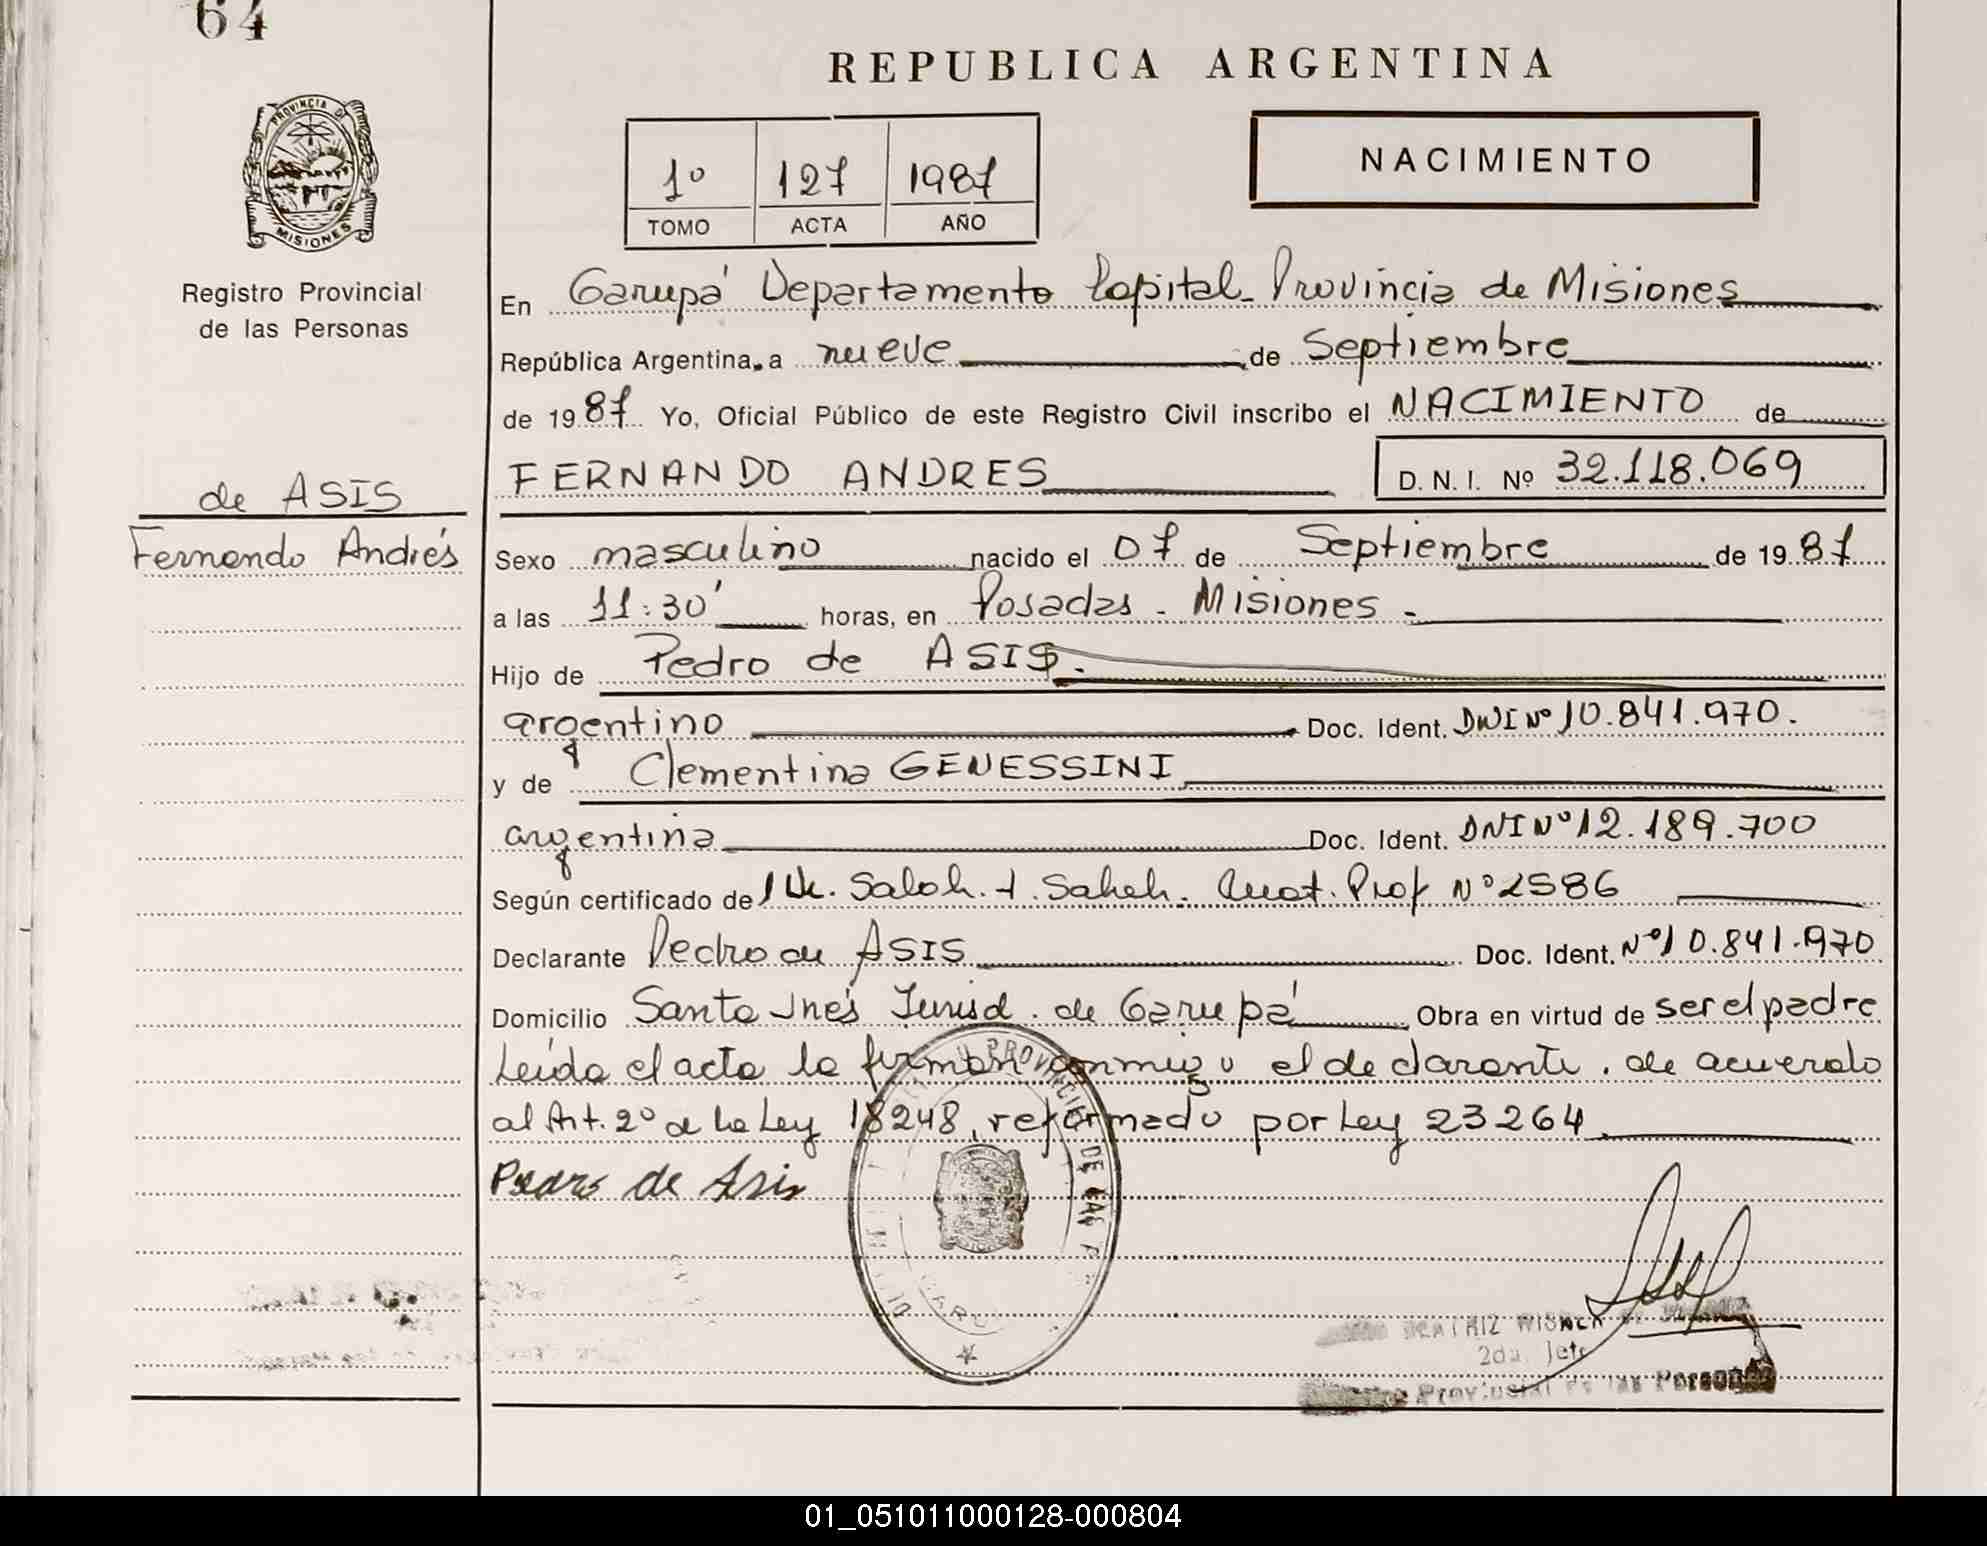 64
REPUBLICA ARGENTINA
PROVINCIA DE
MISIONES
Registro Provincial
de las Personas
1º 127 1987
TOMO ACTA AÑO
NACIMIENTO
En Garupá Departamento Capital - Provincia de Misiones
República Argentina, a nueve de Septiembre
de 1987 Yo, Oficial Público de este Registro Civil inscribo el NACIMIENTO de
FERNANDO ANDRES D. N. I. Nº 32.118.069
de ASIS
Fernando Andrés
Sexo masculino nacido el 07 de Septiembre de 1987
a las 11:30' horas, en Posadas - Misiones -
Hijo de Pedro de ASIS.
argentino Doc. Ident. DNI Nº 10.841.970.
y de Clementina GENESSINI
argentina Doc. Ident. DNI Nº 12.189.700
Según certificado de Saleh. Prof Nº 2586
Declarante Pedro de ASIS Doc. Ident. Nº 10.841.970
Domicilio Santa Inés Jurisd. de Garupá Obra en virtud de ser el padre
Leída el acta la firman conmigo el declarante. de acuerdo
al Art. 2º de la Ley 18248, reformado por Ley 23264
Pedro de Asis
BEATRIZ
2da. Jefe
Provincial de las Personas
01_051011000128-000804